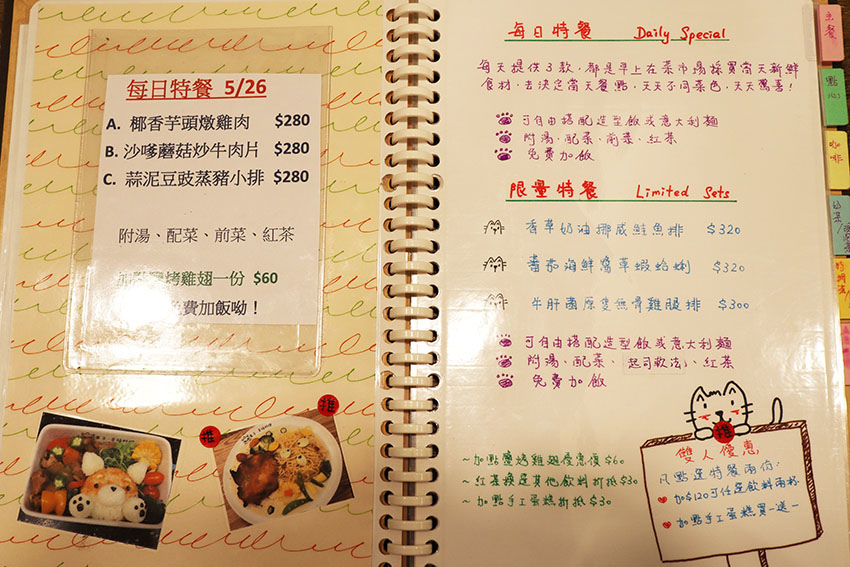 每日特餐 5/26
A. 椰香芋頭燉雞肉 $280
B. 沙嗲蘑菇炒牛肉片 $280
C. 蒜泥豆豉蒸豬小排 $280
附湯、配菜、前菜、紅茶
烤雞翅一份 $60
費加飯呦！
推
推
每日特餐 Daily Special
每天提供3款，都是早上在菜市場採買當天新鮮
食材，去決定當天餐點，天天不同菜色，天天驚喜！
可自由搭配造型飯或意大利麵
附湯、配菜、前菜、紅茶
免費加飯
限量特餐 Limited Sets
香草奶油挪威鮭魚排 $320
番茄海鮮醬草蝦蛤蜊 $320
牛肝菌厚隻無骨雞腿排 $300
可自由搭配造型飯或意大利麵
附湯、配菜、起司軟法、紅茶
免費加飯
~加點鹽烤雞翅優惠價$60
~紅茶換是其他飲料折抵$30
~加點手工蛋糕折抵$30
推
雙人優惠
凡點選特餐兩份：
加$120可任選飲料兩杯
加點手工蛋糕買一送一
主餐
點心
咖啡